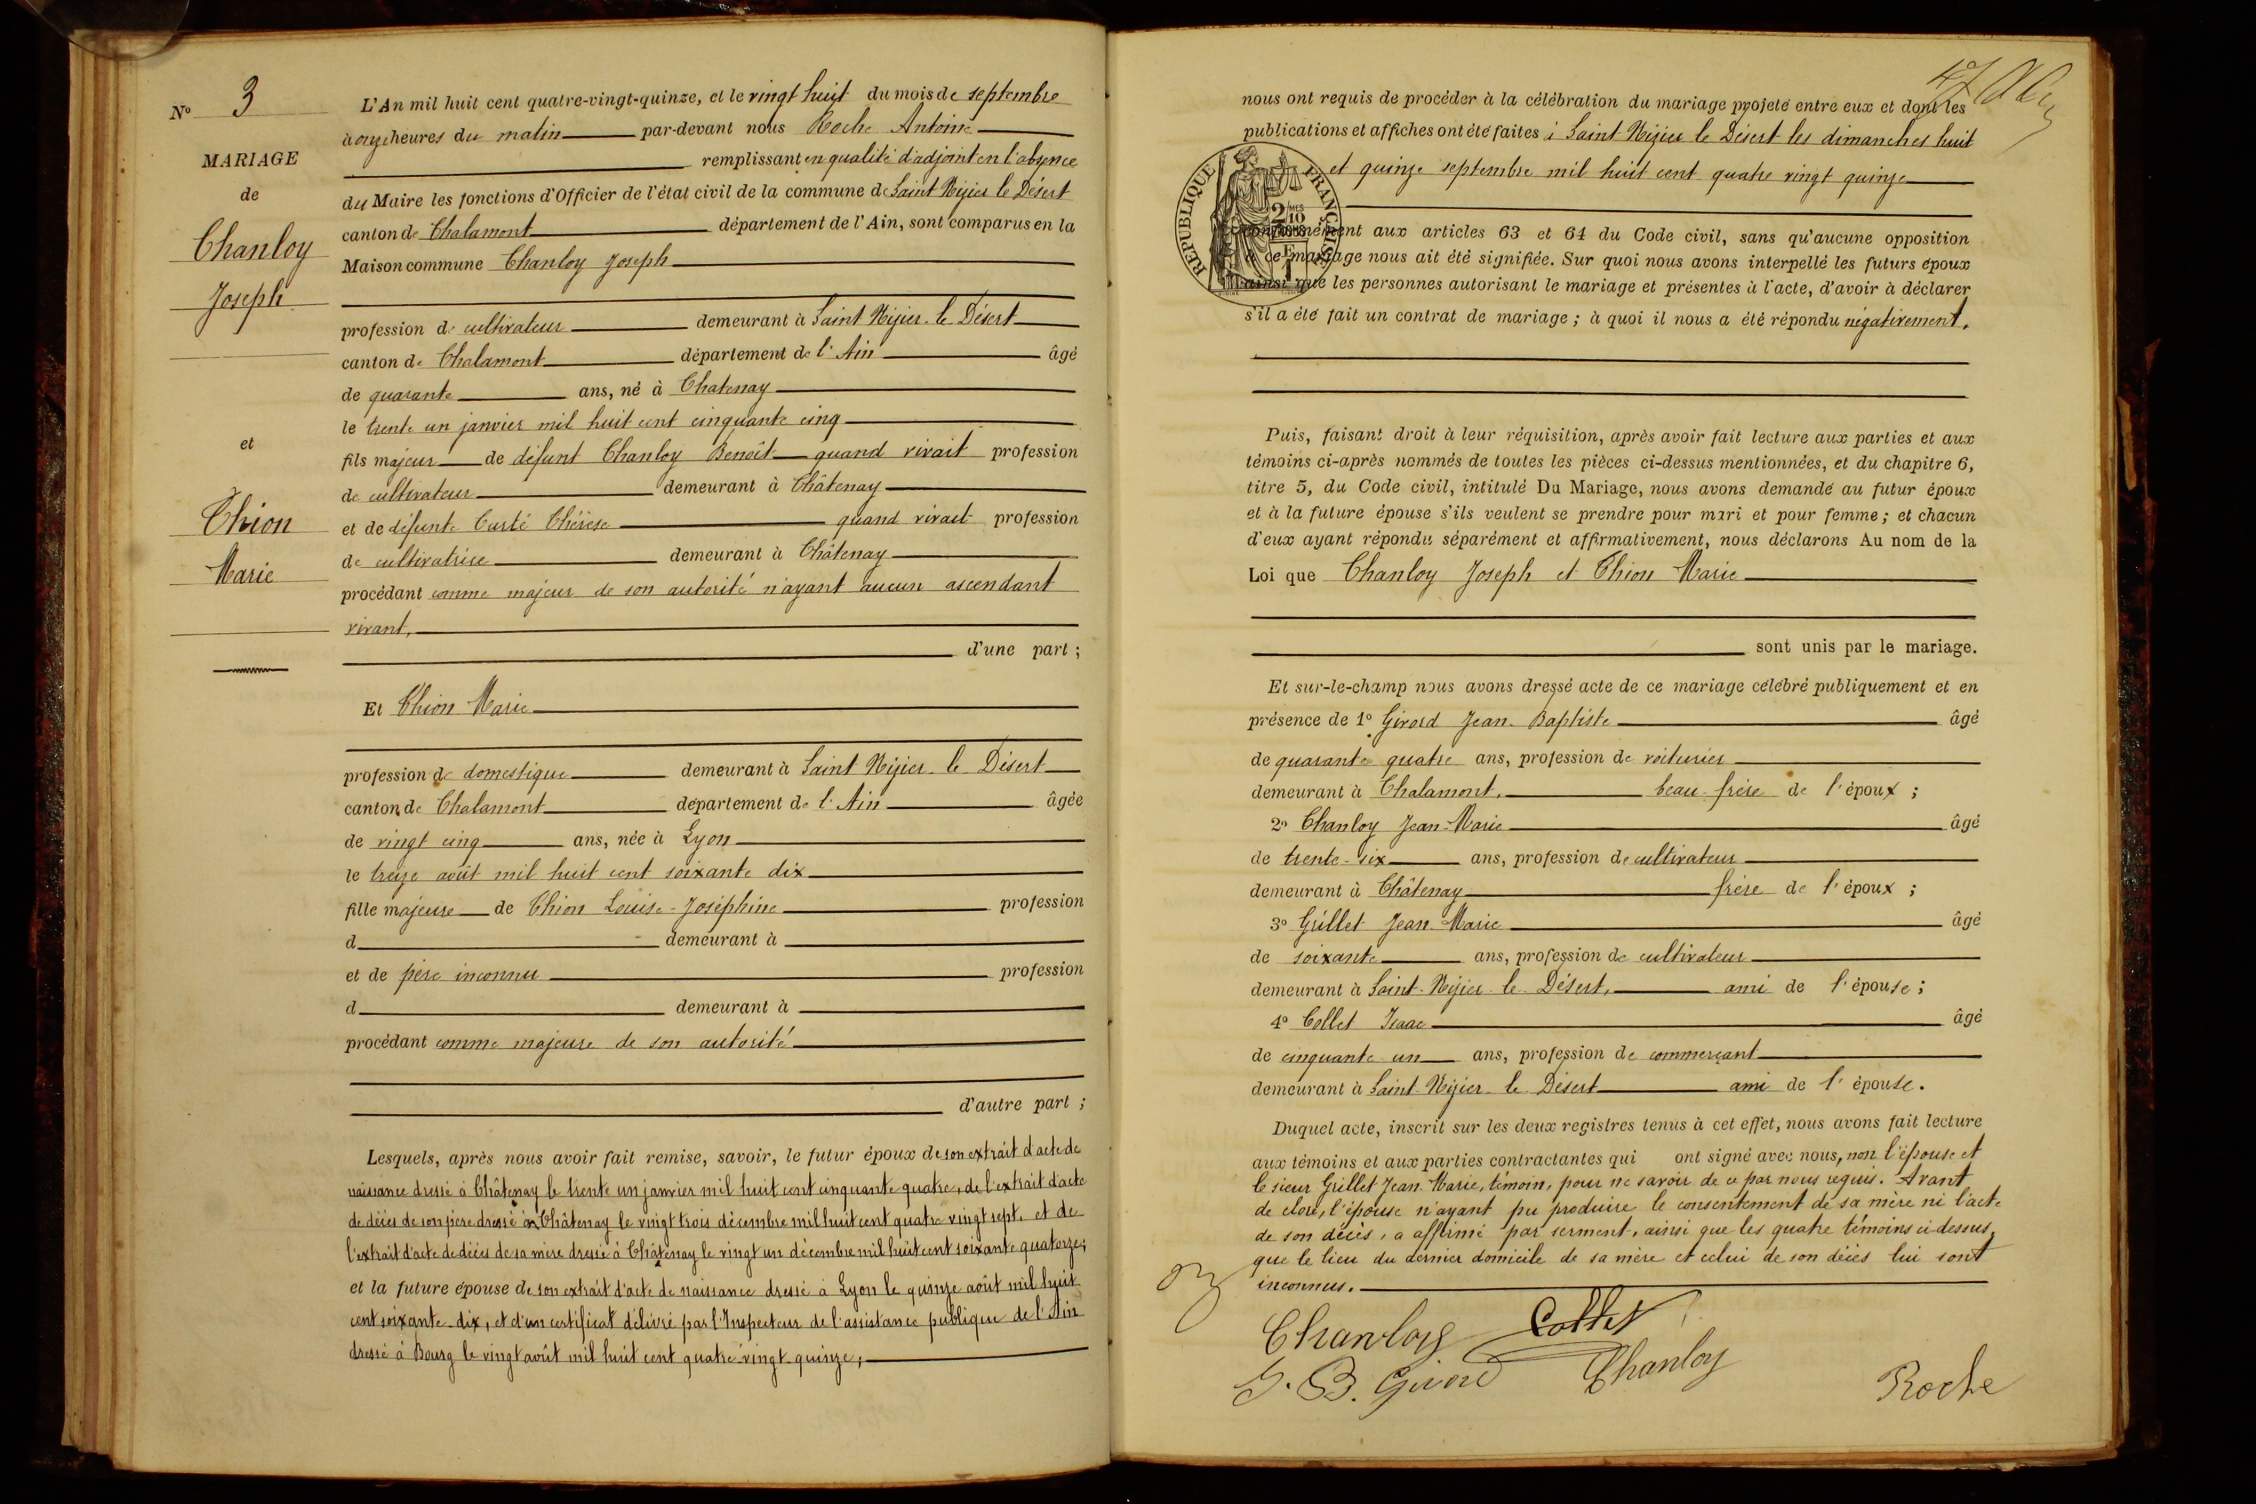 Nº 3
MARIAGE
de
Chanloy
Joseph
et
Thion
Marie
L'An mil huit cent quatre-vingt-quinze, et le vingt huit du mois de septembre
à onze heures du matin par-devant nous Roche Antoine
remplissant en qualité d'adjoint en l'absence
du Maire les fonctions d'Officier de l'état civil de la commune de Saint Nizier le Désert
canton de Chalamont département de l'Ain, sont comparus en la
Maison commune Chanloy Joseph
profession de cultivateur demeurant à Saint Nizier le Désert
canton de Chalamont département de l'Ain âgé
de quarante ans, né à Chatenay
le trente un janvier mil huit cent cinquante cinq
fils majeur de défunt Chanloy Benoît quand vivait profession
de cultivateur demeurant à Châtenay
et de défunte Curté Thérèse quand vivait profession
de cultivatrice demeurant à Châtenay
procédant comme majeur de son autorité n'ayant aucun ascendant
vivant,
d'une part ;
Et Thion Marie
profession de domestique demeurant à Saint Nizier le Désert
canton de Chalamont département de l'Ain âgée
de vingt cinq ans, née à Lyon
le treize août mil huit cent soixante dix
fille majeure de Thion Louise-Joséphine profession
d demeurant à
et de père inconnu profession
d demeurant à
procédant comme majeure de son autorité
d'autre part ;
Lesquels, après nous avoir fait remise, savoir, le futur époux de son extrait d'acte de
naissance dressé à Châtenay le trente un janvier mil huit cent cinquante quatre, de l'extrait d'acte
de décès de son père dressé à Châtenay le vingt trois décembre mil huit cent quatre vingt sept, et de
l'extrait d'acte de décès de sa mère dressé à Châtenay le vingt un décembre mil huit cent soixante quatorze;
et la future épouse de son extrait d'acte de naissance dressé à Lyon le quinze août mil huit
cent soixante-dix, et d'un certificat délivré par l'Inspecteur de l'assistance publique de l'Ain
dressé à Bourg le vingt août mil huit cent quatre-vingt-quinze,
47
nous ont requis de procéder à la célébration du mariage projeté entre eux et dont les
publications et affiches ont été faites à Saint Nizier le Désert les dimanches huit
et quinze septembre mil huit cent quatre vingt quinze
REPUBLIQUE FRANÇAISE
2 MES 10
conformément aux articles 63 et 64 du Code civil, sans qu'aucune opposition
à ce mariage nous ait été signifiée. Sur quoi nous avons interpellé les futurs époux
ainsi que les personnes autorisant le mariage et présentes à l'acte, d'avoir à déclarer
s'il a été fait un contrat de mariage ; à quoi il nous a été répondu négativement,
Puis, faisant droit à leur réquisition, après avoir fait lecture aux parties et aux
témoins ci-après nommés de toutes les pièces ci-dessus mentionnées, et du chapitre 6,
titre 5, du Code civil, intitulé Du Mariage, nous avons demandé au futur époux
et à la future épouse s'ils veulent se prendre pour mari et pour femme ; et chacun
d'eux ayant répondu séparément et affirmativement, nous déclarons Au nom de la
Loi que Chanloy Joseph et Thion Marie
sont unis par le mariage.
Et sur-le-champ nous avons dressé acte de ce mariage célébré publiquement et en
présence de 1º Girord Jean-Baptiste âgé
de quarante quatre ans, profession de voiturier
demeurant à Chalamont, beau-frère de l'époux ;
2º Chanloy Jean-Marie âgé
de trente-six ans, profession de cultivateur
demeurant à Châtenay frère de l'époux ;
3º Grillet Jean-Marie âgé
de soixante ans, profession de cultivateur
demeurant à Saint-Nizier-le-Désert, ami de l'épouse ;
4º Collet Isaac âgé
de cinquante-un ans, profession de commerçant
demeurant à Saint-Nizier-le-Désert ami de l'épouse.
Duquel acte, inscrit sur les deux registres tenus à cet effet, nous avons fait lecture
aux témoins et aux parties contractantes qui ont signé avec nous, non l'épouse et
le sieur Grillet Jean-Marie, témoin, pour ne savoir de ce par nous requis. Avant
de clore, l'épouse n'ayant pu produire le consentement de sa mère ni l'acte
de son décès, a affirmé par serment, ainsi que les quatre témoins ci-dessus,
que le lieu du dernier domicile de sa mère et celui de son décès lui sont
inconnus.
Chanloy Collet
J. B. Girord Chanloy
Roche